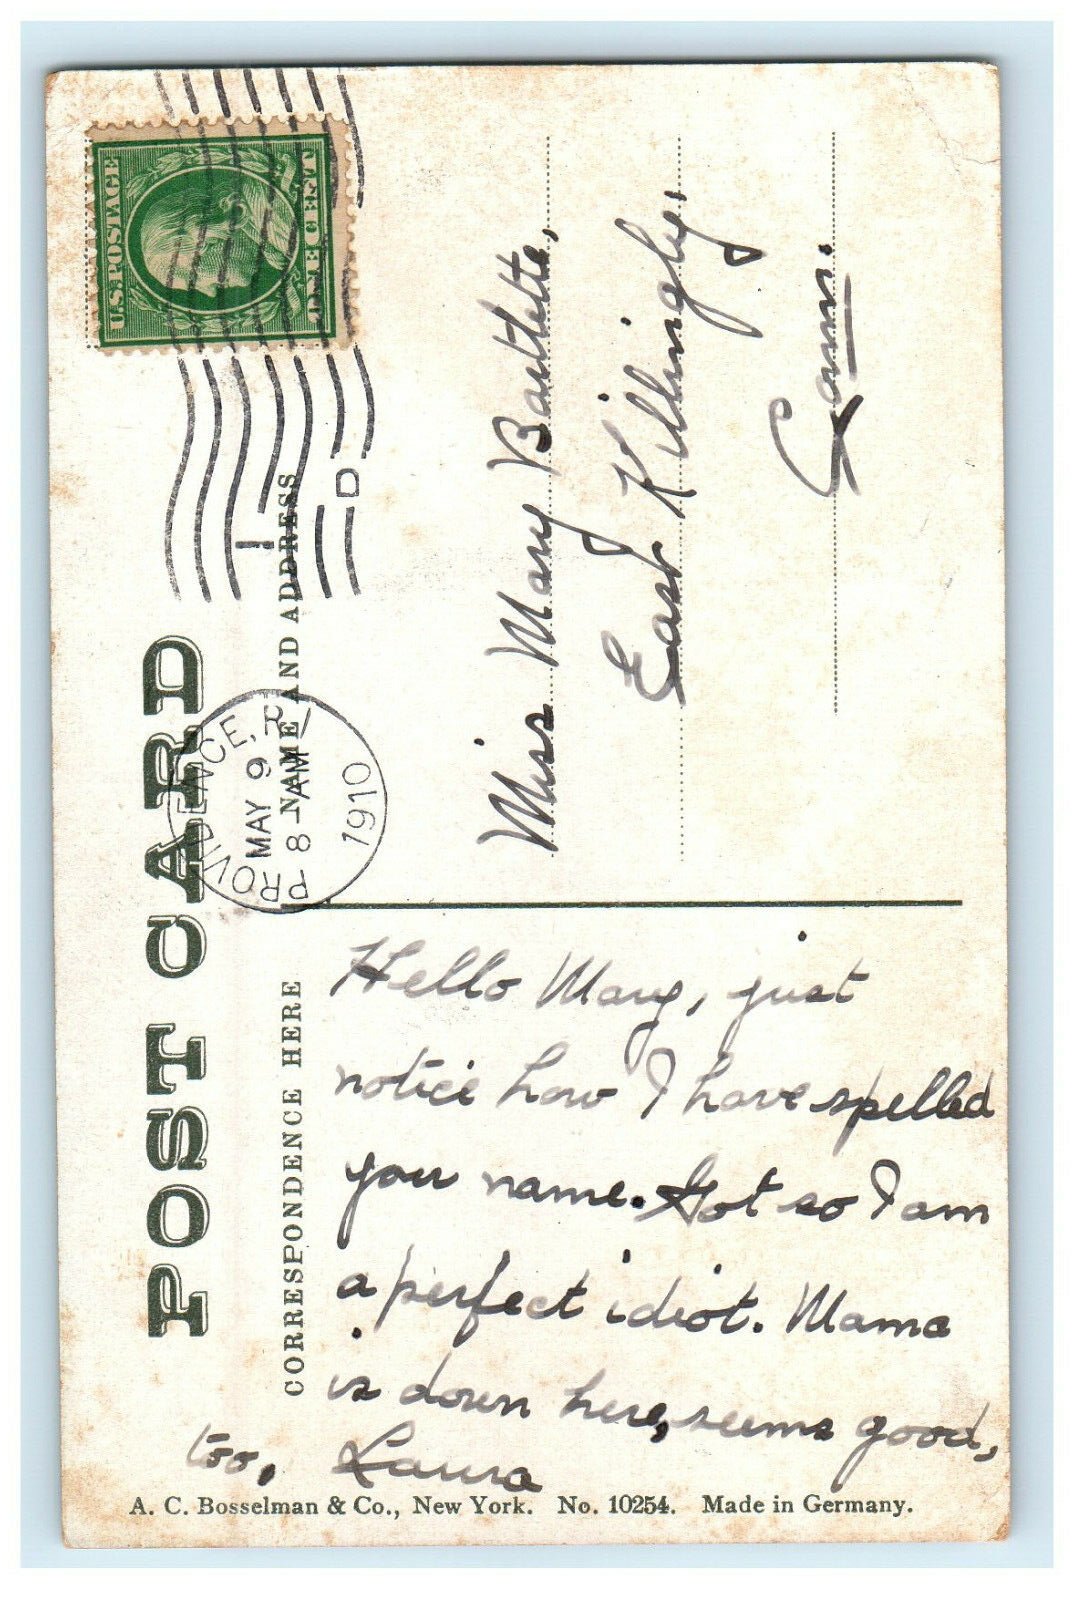 POST CARD
NAME AND ADDRESS
CORRESPONDENCE HERE
U.S. POSTAGE
ONE CENT
PROVIDENCE, R.I.
MAY 9
8 AM
1910
1
D
Miss Mary Bartlette,
East Killingly,
Conn.
Hello Mary, just
notice how I have spelled
you name. Got so I am
a perfect idiot. Mama
is down here, seems good,
too, Laura
A. C. Bosselman & Co., New York. No. 10254. Made in Germany.